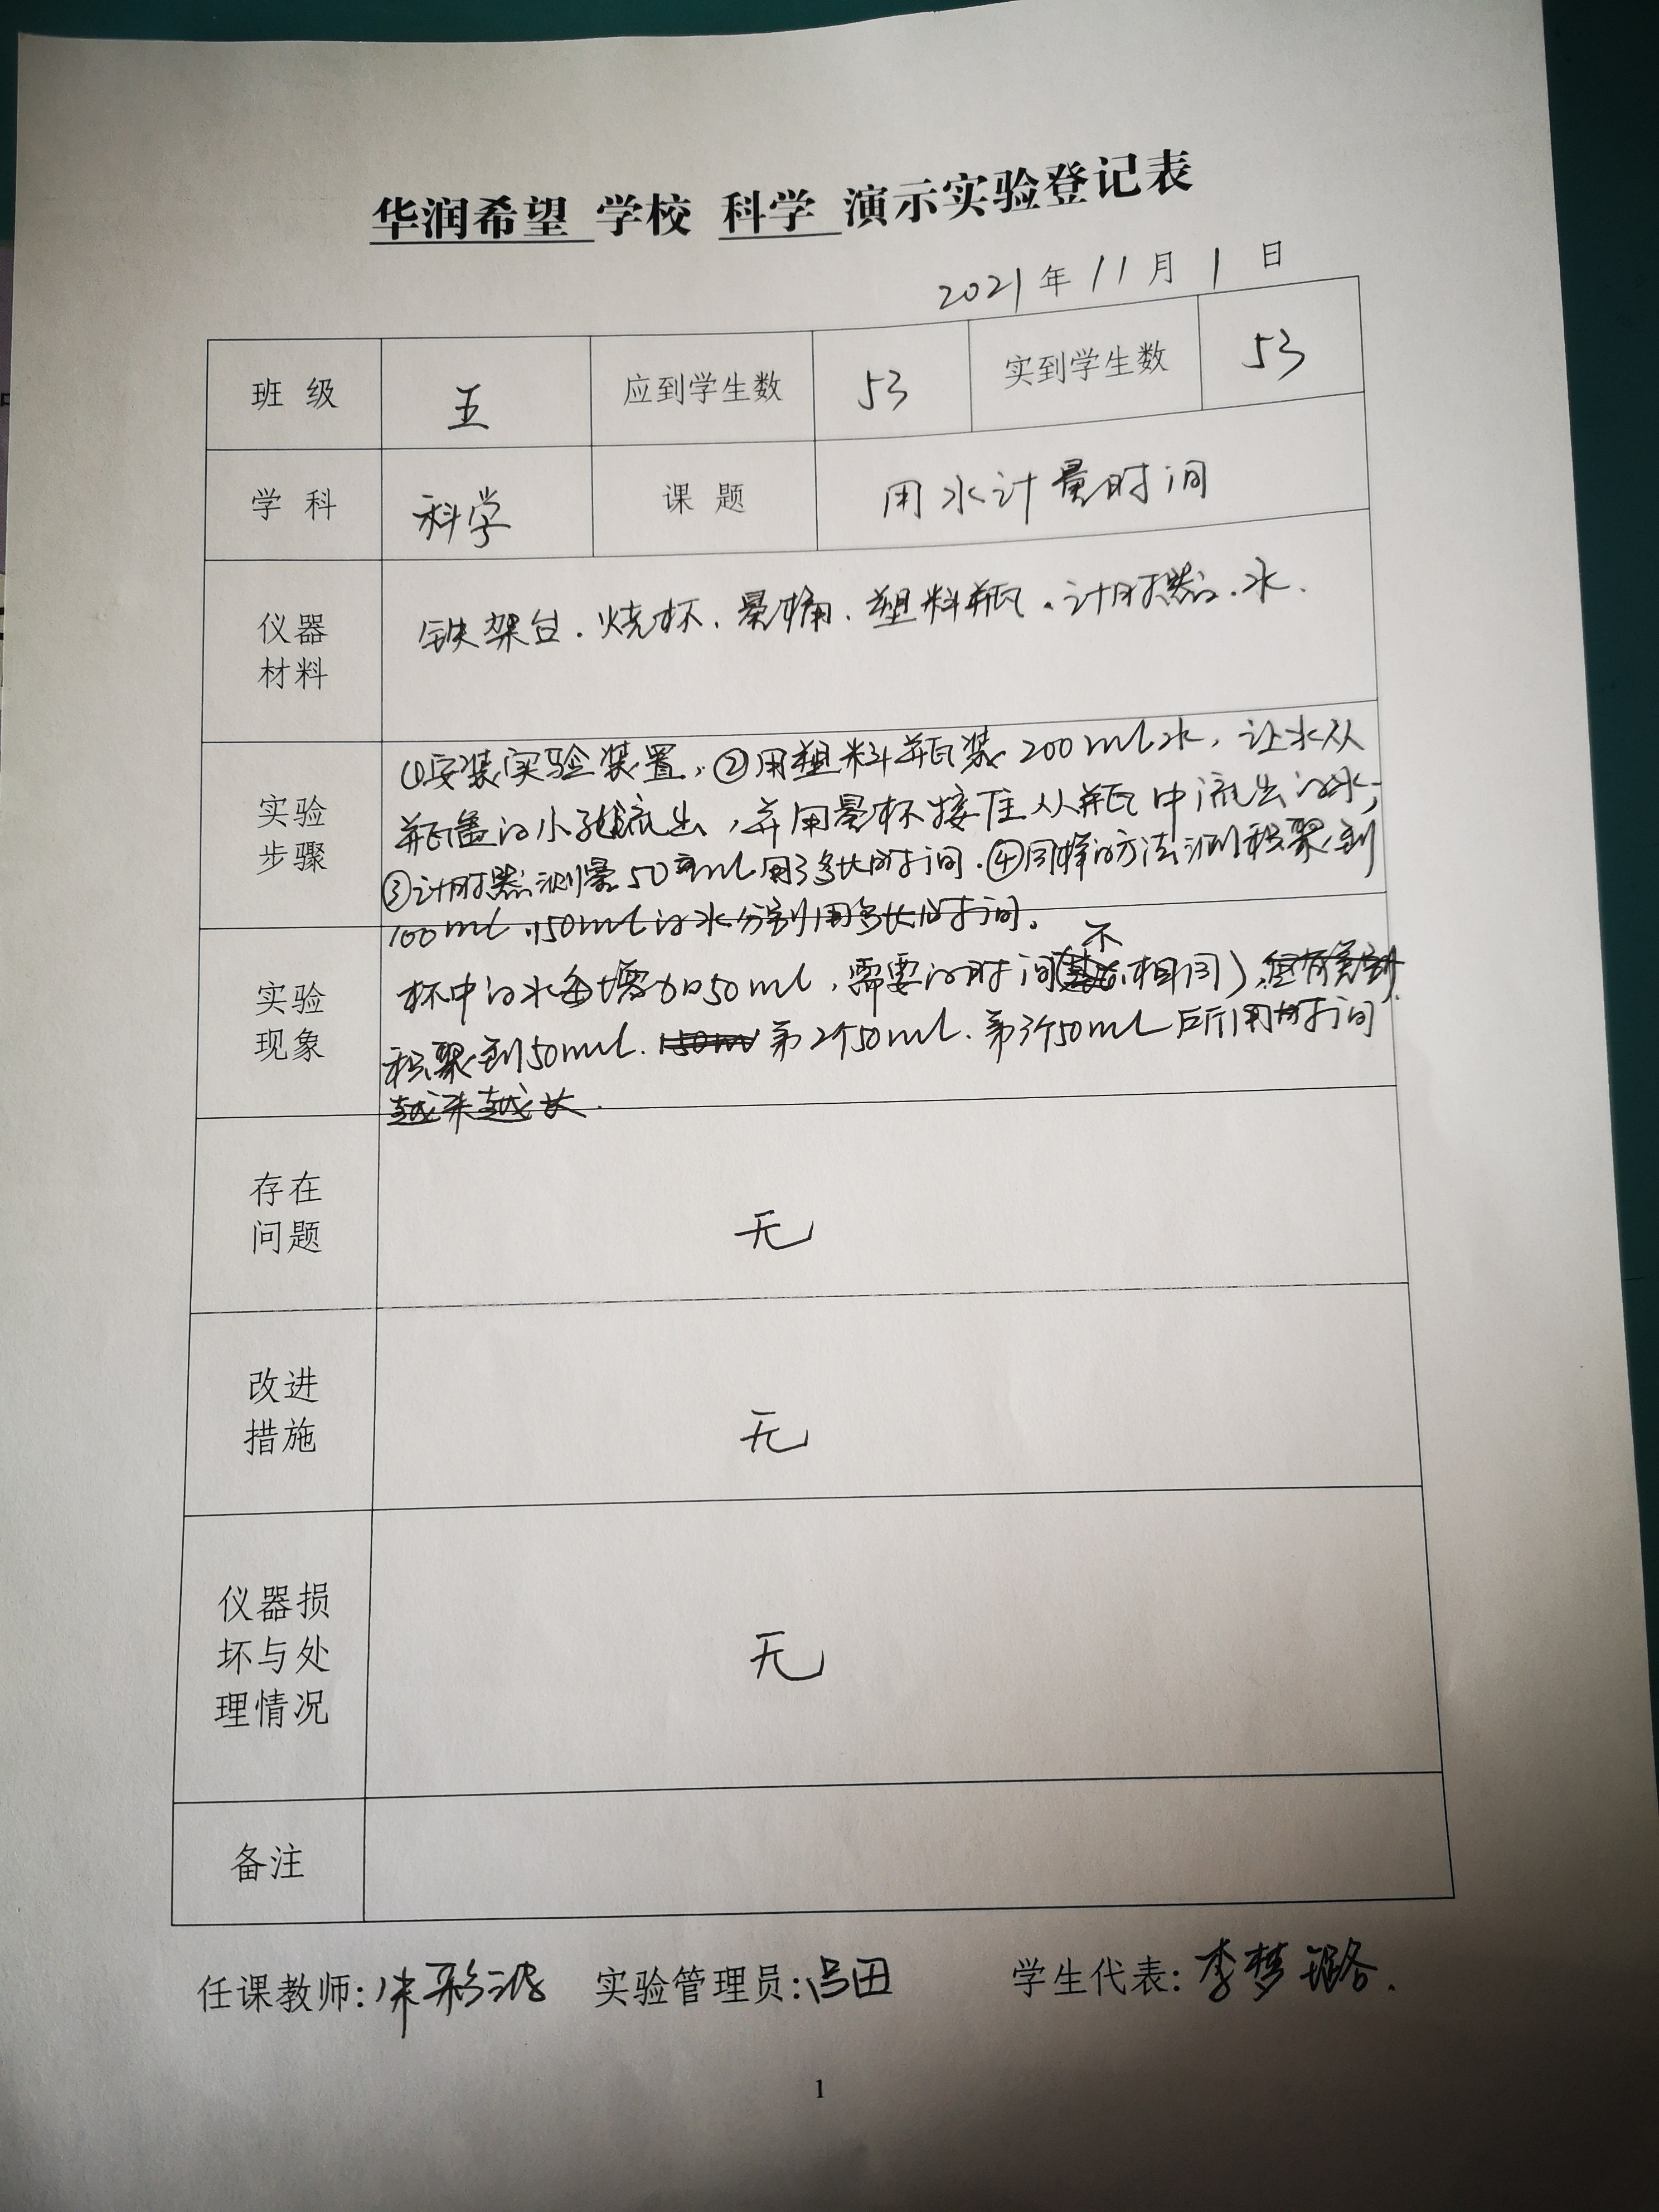 华润希望 学校 科学 演示实验登记表
2021年11月1日
班 级 五 应到学生数 53 实到学生数 53
学 科 科学 课 题 用水计量时间
仪器
材料
铁架台.烧杯.量桶.塑料瓶.计时器.水.
实验
步骤
①安装实验装置.②用塑料瓶装200ml水，让水从
瓶盖的小孔流出，并用量杯接住从瓶中流出的水；
③计时器测量50ml用了多长时间.④同样的方法测积聚到
100ml.150ml的水分别用多长时间。
实验
现象
杯中的水每增加50ml，需要的时间(不相同)，
积聚到50ml. 第2个50ml.第3个50ml所用时间
越来越长.
存在
问题
无
改进
措施
无
仪器损
坏与处
理情况
无
备注
任课教师: 实验管理员: 学生代表:李梦璐.
1